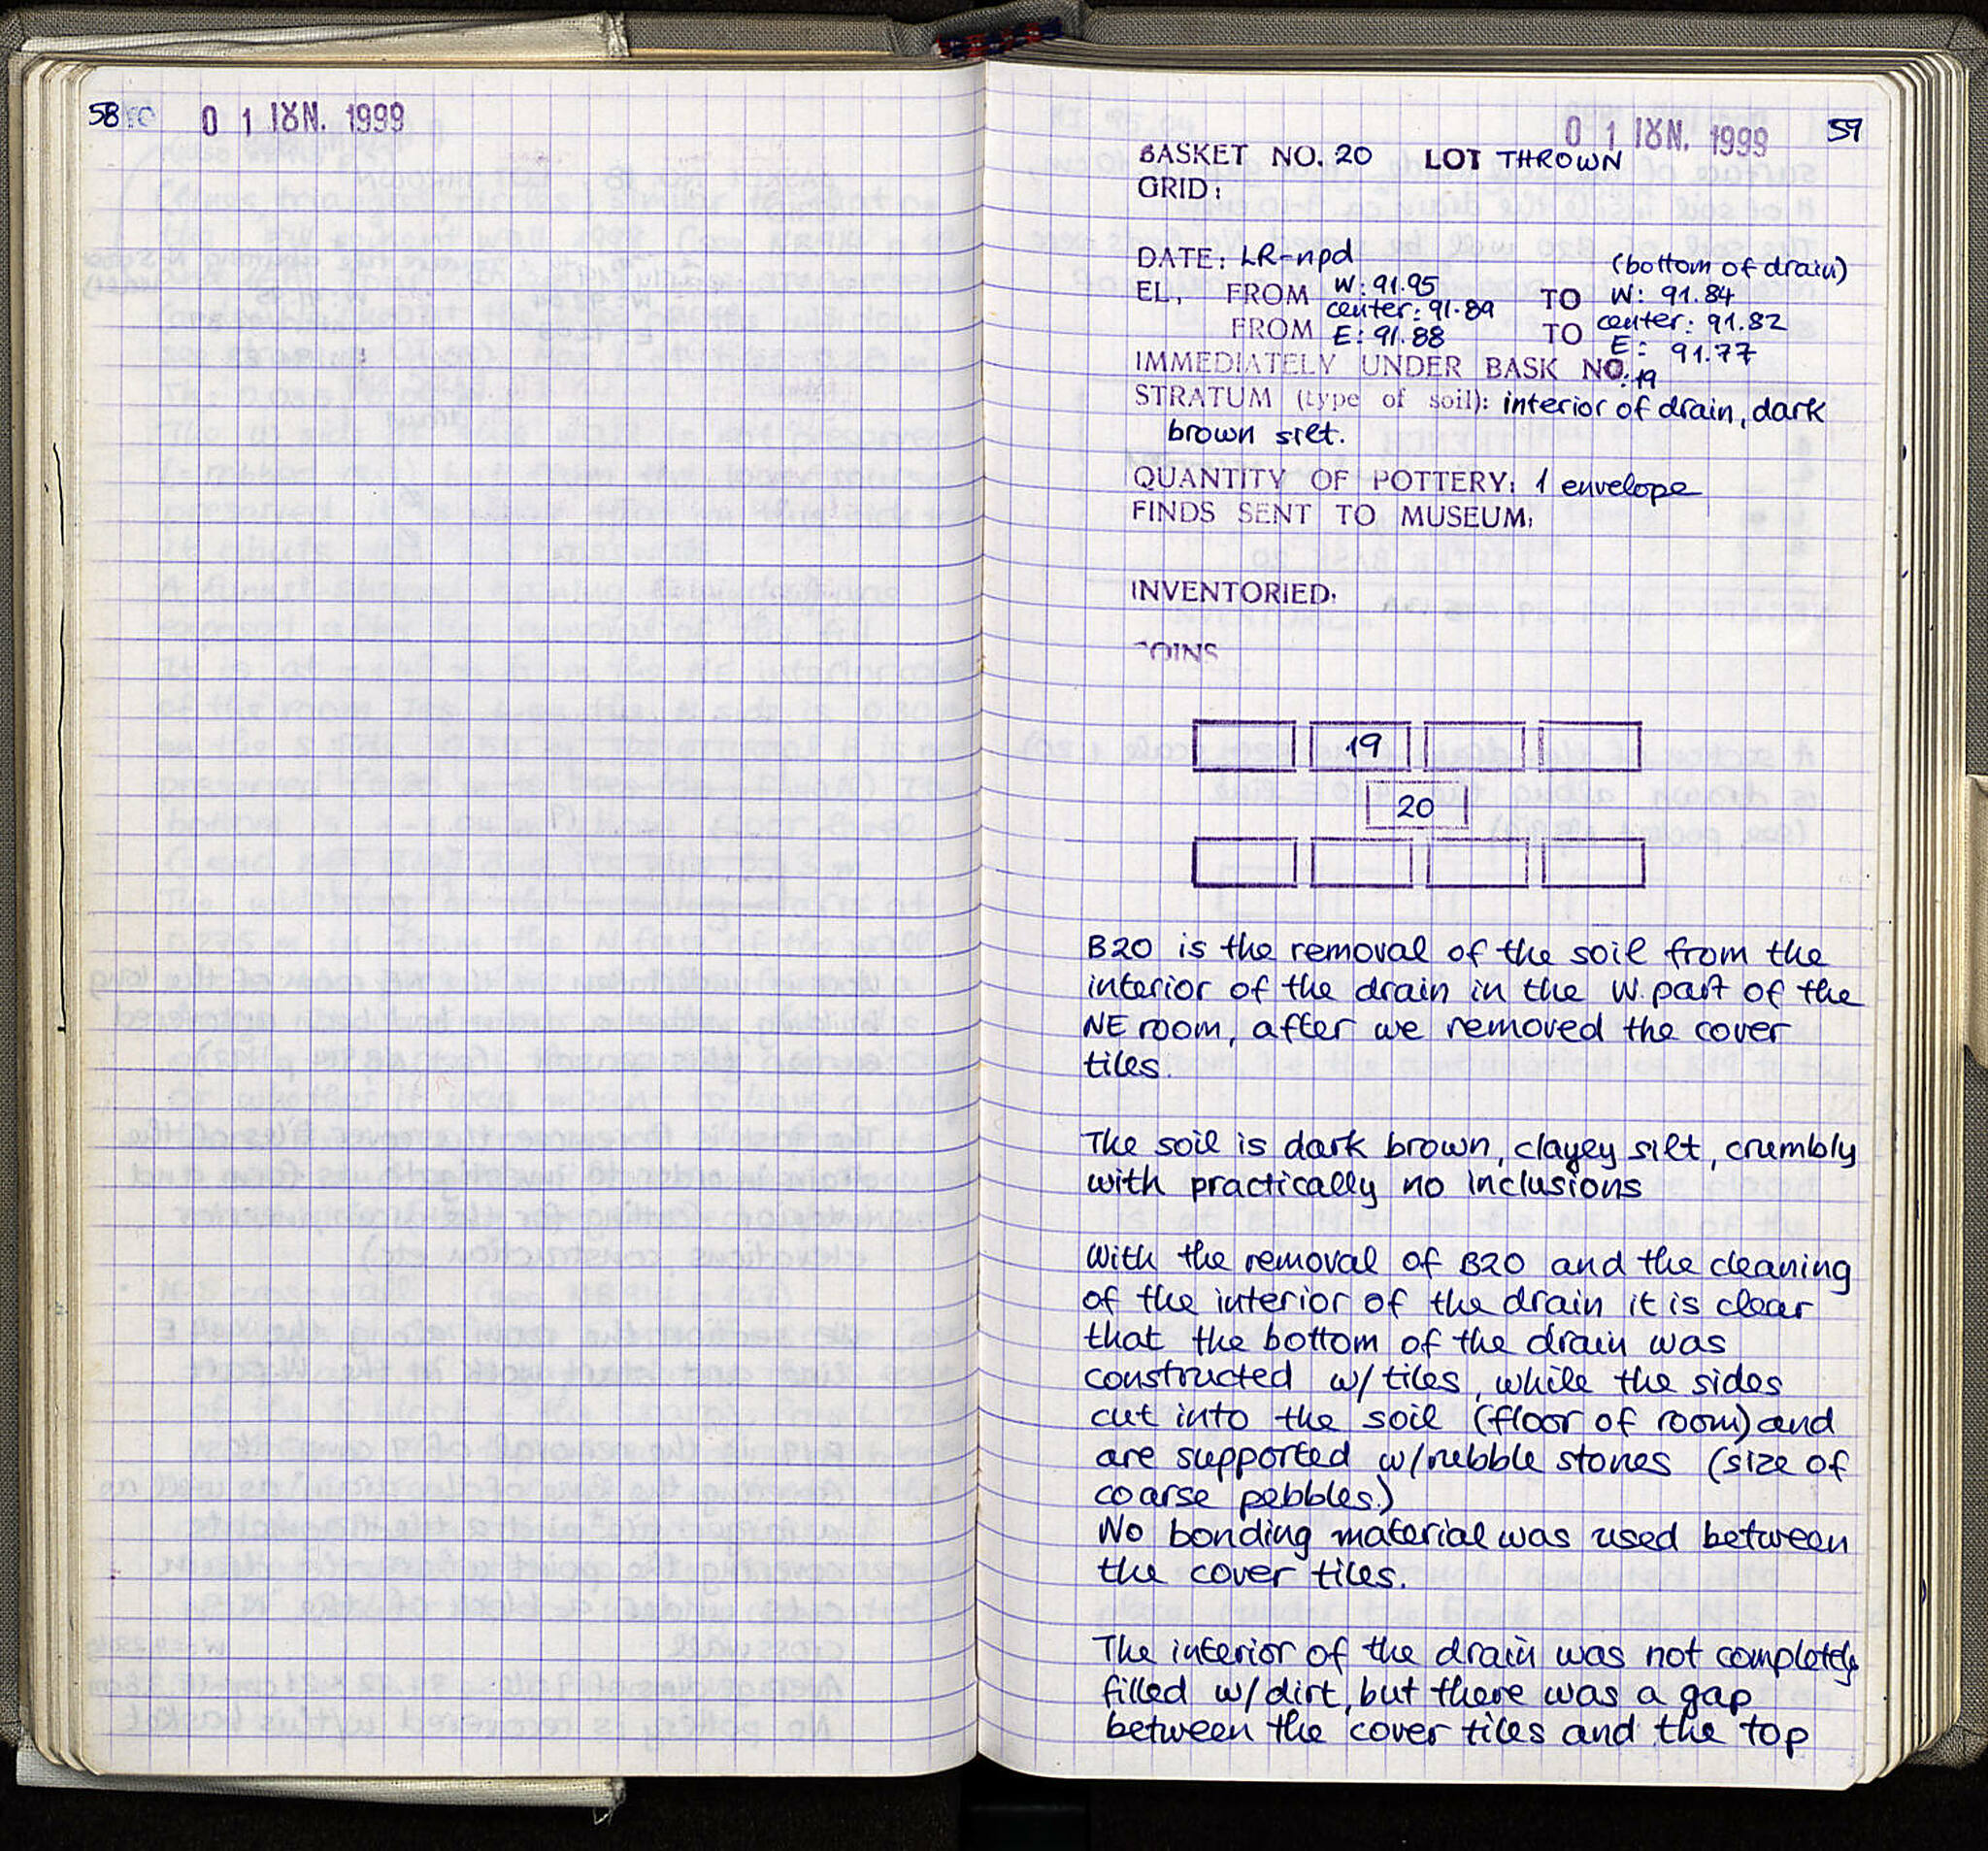 58
0 1 ΙΟΥΝ. 1999
0 1 ΙΟΥΝ. 1999
59
BASKET NO. 20 LOT THROWN
GRID:
DATE: LR-npd
(bottom of drain)
EL, FROM W: 91.95 TO W: 91.84
center: 91.89 center: 91.82
FROM E: 91.88 TO E: 91.77
IMMEDIATELY UNDER BASK NO. 19
STRATUM (type of soil): interior of drain, dark
brown silt.
QUANTITY OF POTTERY: 1 envelope
FINDS SENT TO MUSEUM:
INVENTORIED:
COINS
19
20
B20 is the removal of the soil from the
interior of the drain in the W. part of the
NE room, after we removed the cover
tiles.
The soil is dark brown, clayey silt, crumbly
with practically no inclusions
With the removal of B20 and the cleaning
of the interior of the drain it is clear
that the bottom of the drain was
constructed w/tiles, while the sides
cut into the soil (floor of room) and
are supported w/rubble stones (size of
coarse pebbles.)
No bonding material was used between
the cover tiles.
The interior of the drain was not completely
filled w/dirt, but there was a gap
between the cover tiles and the top